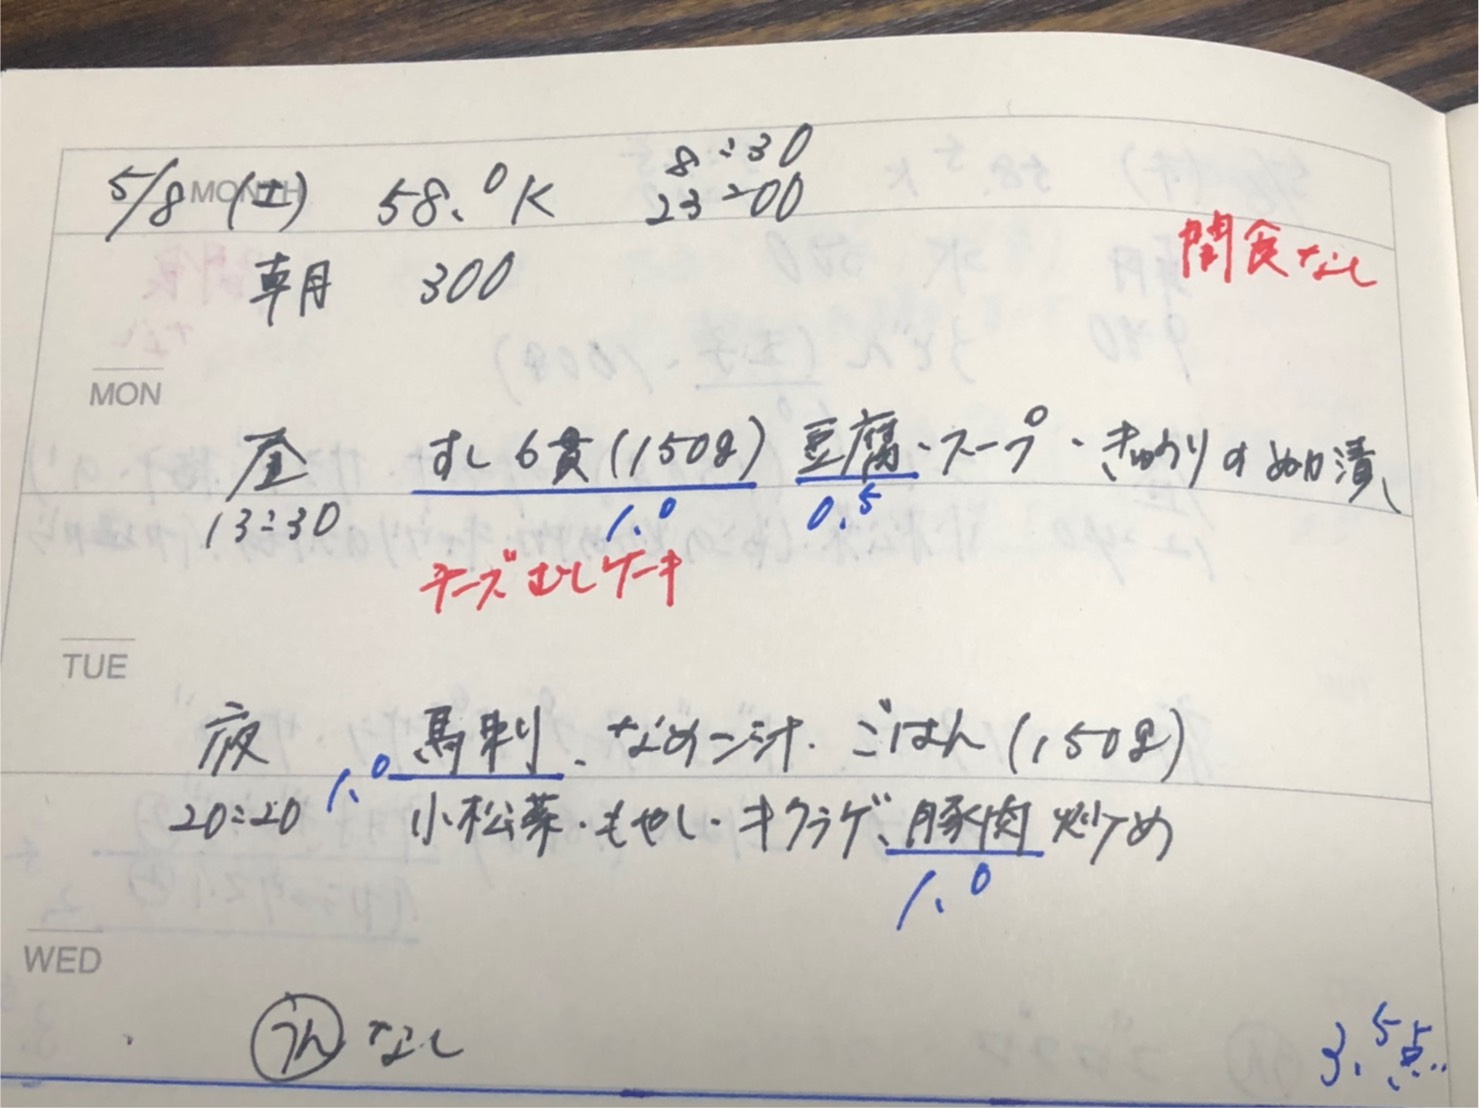 8:30
5/8 (土) 58.0K 23:00
MONTH
間食なし
朝 300
MON
昼 すし6貫(150g) 豆腐・スープ・きゅうりのぬか漬
13:30 1.0 0.5
チーズむしケーキ
TUE
夜 馬刺、なめこ汁、ごはん(150g)
1.0
20:20 小松菜・もやし・キクラゲ、豚肉炒め
1.0
WED
うん なし
3.5点